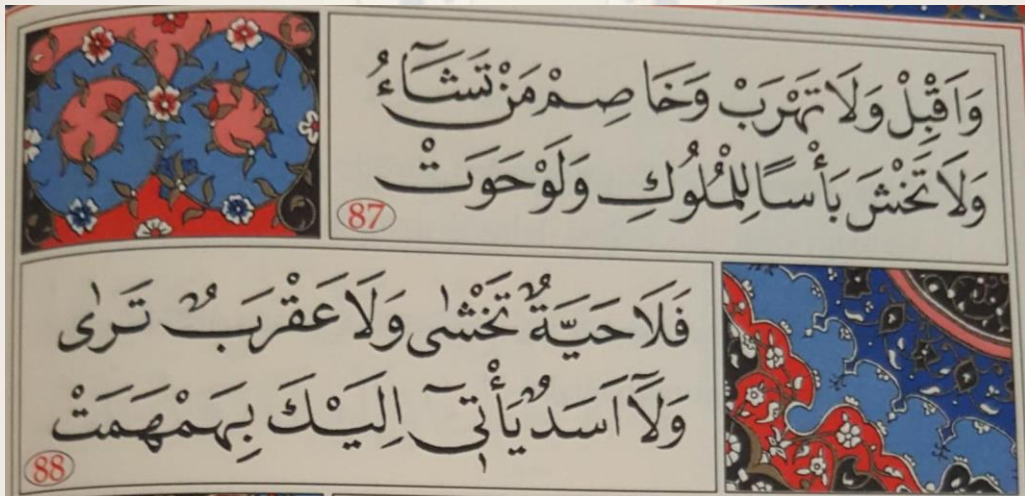 وَاَقْبِلْ وَلَا تَهْرَبْ وَخَاصِمْ مَنْ تَشَٓاءُ
وَلَا تَخْشَ بَأْسًا لِلْمُلُوكِ وَلَوْحَوَتْ
87
فَلَا حَيَّةٌ تَخْشٰى وَلَا عَقْرَبٌ تَرٰى
وَلَٓا اَسَدٌ يَأْتِٓى اِلَيْكَ بِهَمْهَمَتْ
88